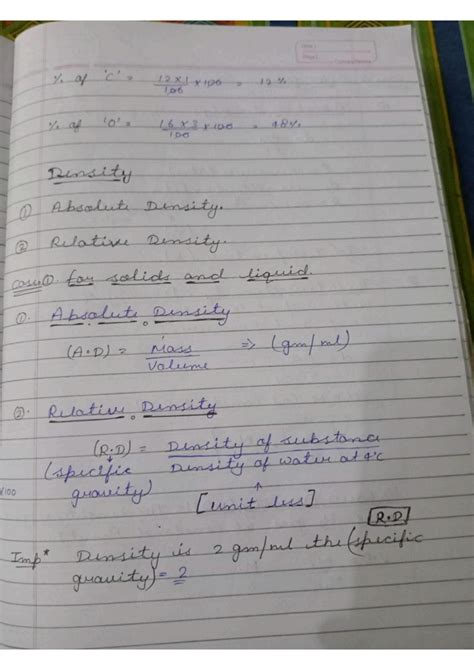 % of 'C' = 12 x 1 / 100 x 100 = 12 %
% of 'O' = 16 x 3 / 100 x 100 = 48 %
Density
① Absolute Density.
② Relative Density.
case① for solids and liquid.
①. Absolute Density
(A.D) = Mass / Volume => (gm/ml)
②. Relative Density
(R.D) = Density of substanc
(specific Density of water at 4°c
gravity)
x100
↑
[unit less]
[R.D]
Imp* Density is 2 gm/ml the (specific
gravity) = 2